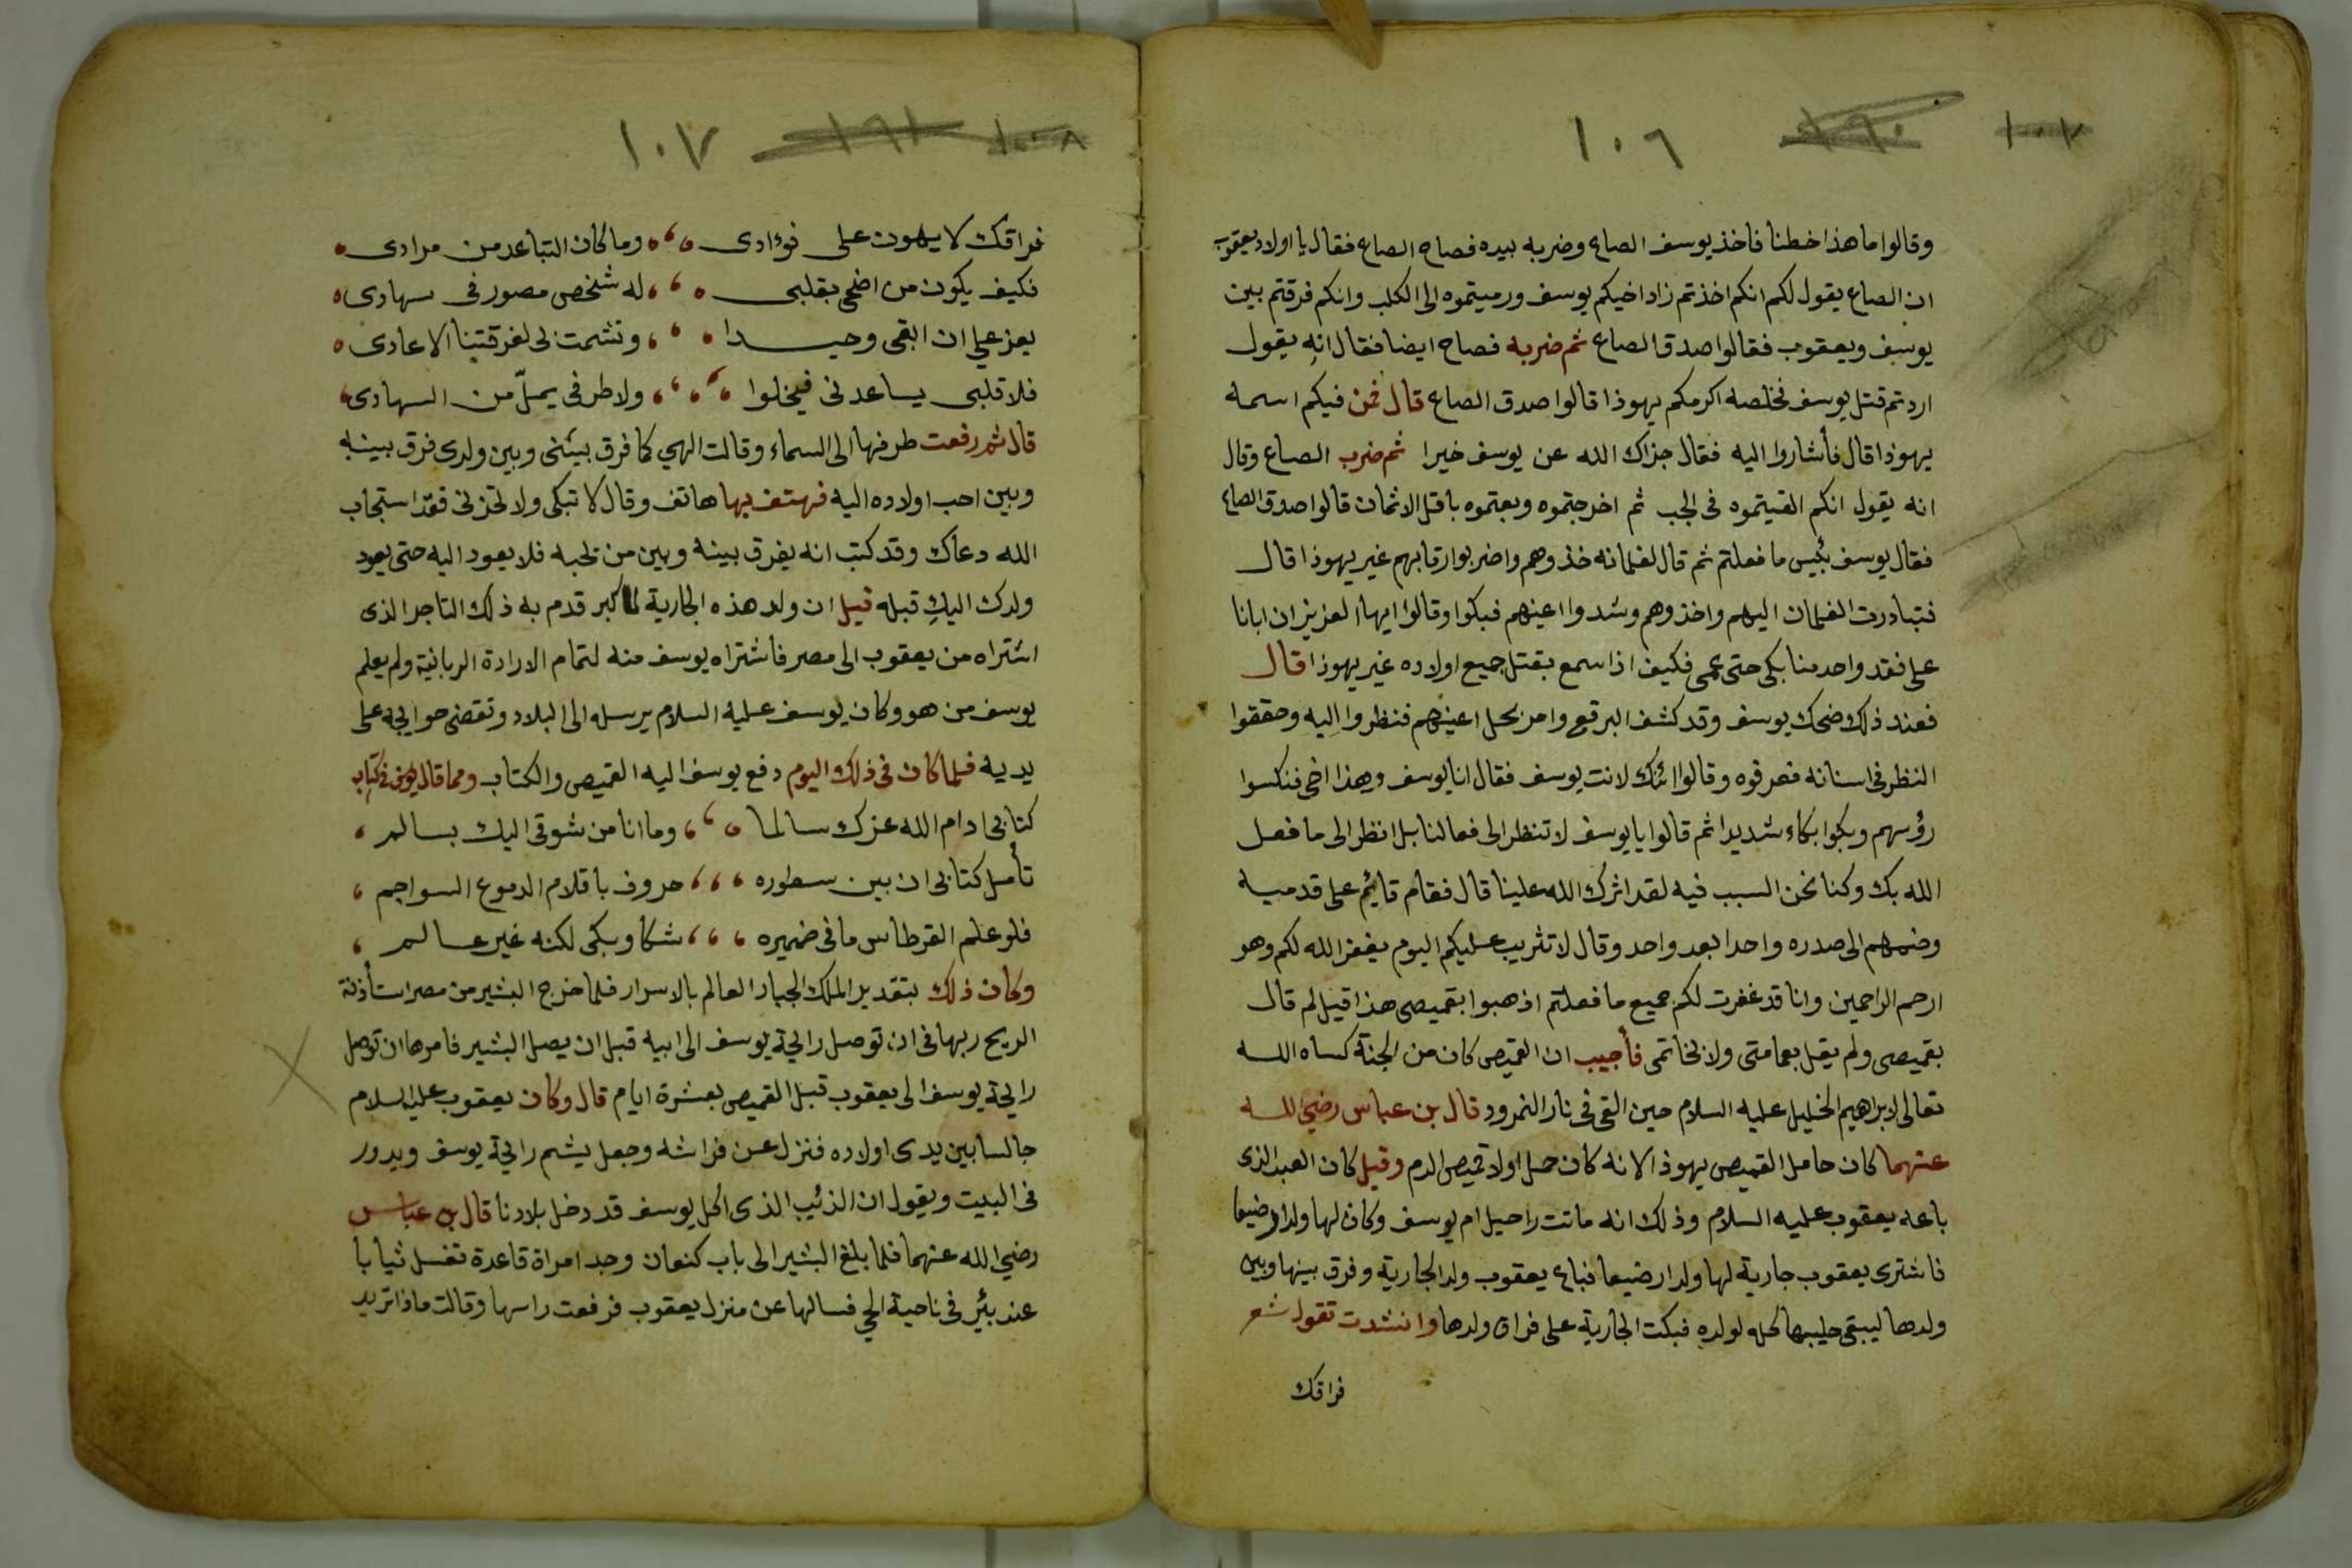 ١٠٦
وقالوا ما هذا خطنا فاخذ يوسف الصاع وضربه بيده فصاح الصاع فقال يا اولاد يعقوب
ان الصاع يقول لكم انكم اخذتم زاد اخيكم يوسف ورميتموه الى الكلب وانكم فرقتم بين
يوسف ويعقوب فقالوا صدق الصاع ثم ضربه فصاح ايضا فقال انه يقول
اردتم قتل يوسف فخلصه اكرمكم يهوذا قالوا صدق الصاع قال فمن فيكم اسمه
يهوذا قال فأشاروا اليه فقال جزاك الله عن يوسف خيرا ثم ضرب الصاع وقال
انه يقول انكم القيتموه فى الجب ثم اخرجتموه وبعتموه باقل الاثمان قالوا صدق الصاع
فقال يوسف بئيس ما فعلتم ثم قال لغلمانه خذوهم واضربوا رقابهم غير يهوذا قال
فتبادرت الغلمان اليهم واخذوهم وشدوا اعينهم فبكوا وقالوا ايها العزيز ان ابانا
على فقد واحد منا بكى حتى عمى فكيف اذا سمع بقتل جميع اولاده غير يهوذا قال
فعند ذلك ضحك يوسف وقد كشف البرقع وامر بحل اعينهم فنظروا اليه وحققوا
النظر فى اسنانه فعرفوه وقالوا ائنك لانت يوسف فقال انا يوسف وهذا اخى فنكسوا
رؤسهم وبكوا بكاء شديدا ثم قالوا يا يوسف لا تنظر الى فعالنا بل انظر الى ما فعل
الله بك وكنا نحن السبب فيه لقد اثرك الله علينا قال فقام قايم على قدميه
وضمهم الى صدره واحدا بعد واحد وقال لا تثريب عليكم اليوم يغفر الله لكم وهو
ارحم الراحمين وانا قد غفرت لكم جميع ما فعلتم اذهبوا بقميصى هذا قيل لم قال
بقميصى ولم يقل بعمامتى ولا بخاتمى فأجيب ان القميص كان من الجنة كساه الله
تعالى لابراهيم الخليل عليه السلام حين القى فى نار النمرود قال بن عباس رضي الله
عنهما كان حامل القميص يهوذا لانه كان حمل اولا قميص الدم وقيل كان العبد الذى
باعه يعقوب عليه السلام وذلك انه ماتت راحيل ام يوسف وكان لها ولدا رضيعا
فاشترى يعقوب جارية لها ولدا رضيعا فباع يعقوب ولد الجارية وفرق بينها وبين
ولدها ليبقى حليبها كله لولده فبكت الجارية على فراق ولدها وانشدت تقول شعر
فراقك
١٠٧
فراقك لا يهون على فوءادى وما كان التباعد من مرادى
فكيف يكون من اضحى بقلبى له شخص مصور فى سهادى
يعز علي ان ابقى وحيدا وتشمت لى لفرقتنا الاعادى
فلا قلبى يساعدنى فيخلوا ولا طرفى يملّ من السهادى
قال ثم رفعت طرفها الى السماء وقالت الهي كما فرق بينى وبين ولدى فرق بينه
وبين احب اولاده اليه فهتف بها هاتف وقال لا تبكى ولا تحزنى فقد استجاب
الله دعاك وقد كتب انه يفرق بينه وبين من يحبه فلا يعود اليه حتى يعود
ولدك اليكِ قبله قيل ان ولد هذه الجارية لما كبر قدم به ذلك التاجر الذى
اشتراه من يعقوب الى مصر فاشتراه يوسف منه لتمام الارادة الربانية ولم يعلم
يوسف من هو وكان يوسف عليه السلام يرسله الى البلاد وتقضى حوايجه على
يديه فلما كان فى ذلك اليوم دفع يوسف اليه القميص والكتاب ومما قال يوسف فى كتابه
كتابى ادام الله عزك سالما وما انا من شوقى اليك بسالم
تأمل كتابى ان بين سطوره حروف باقلام الدموع السواجم
فلو علم القرطاس ما فى ضميره شكا وبكى لكنه غير عالم
وكان ذلك بتقدير الملك الجبار العالم بالاسرار فلما خرج البشير من مصر استأذنة
الريح ربها فى ان توصل رايحة يوسف الى ابيه قبل ان يصل البشير فامرها ان توصل
رايحة يوسف الى يعقوب قبل القميص بعشرة ايام قال وكان يعقوب عليه السلام
جالسا بين يدى اولاده فنزل عن فراشه وجعل يشم رايحة يوسف ويدور
فى البيت ويقول ان الذئيب الذى اكل يوسف قد دخل بلادنا قال بن عباس
رضي الله عنهما فلما بلغ البشير الى باب كنعان وجد امراة قاعدة تغسل ثيابا
عند بئير فى ناحية الحي فسالها عن منزل يعقوب فرفعت راسها وقالت ماذا تريد